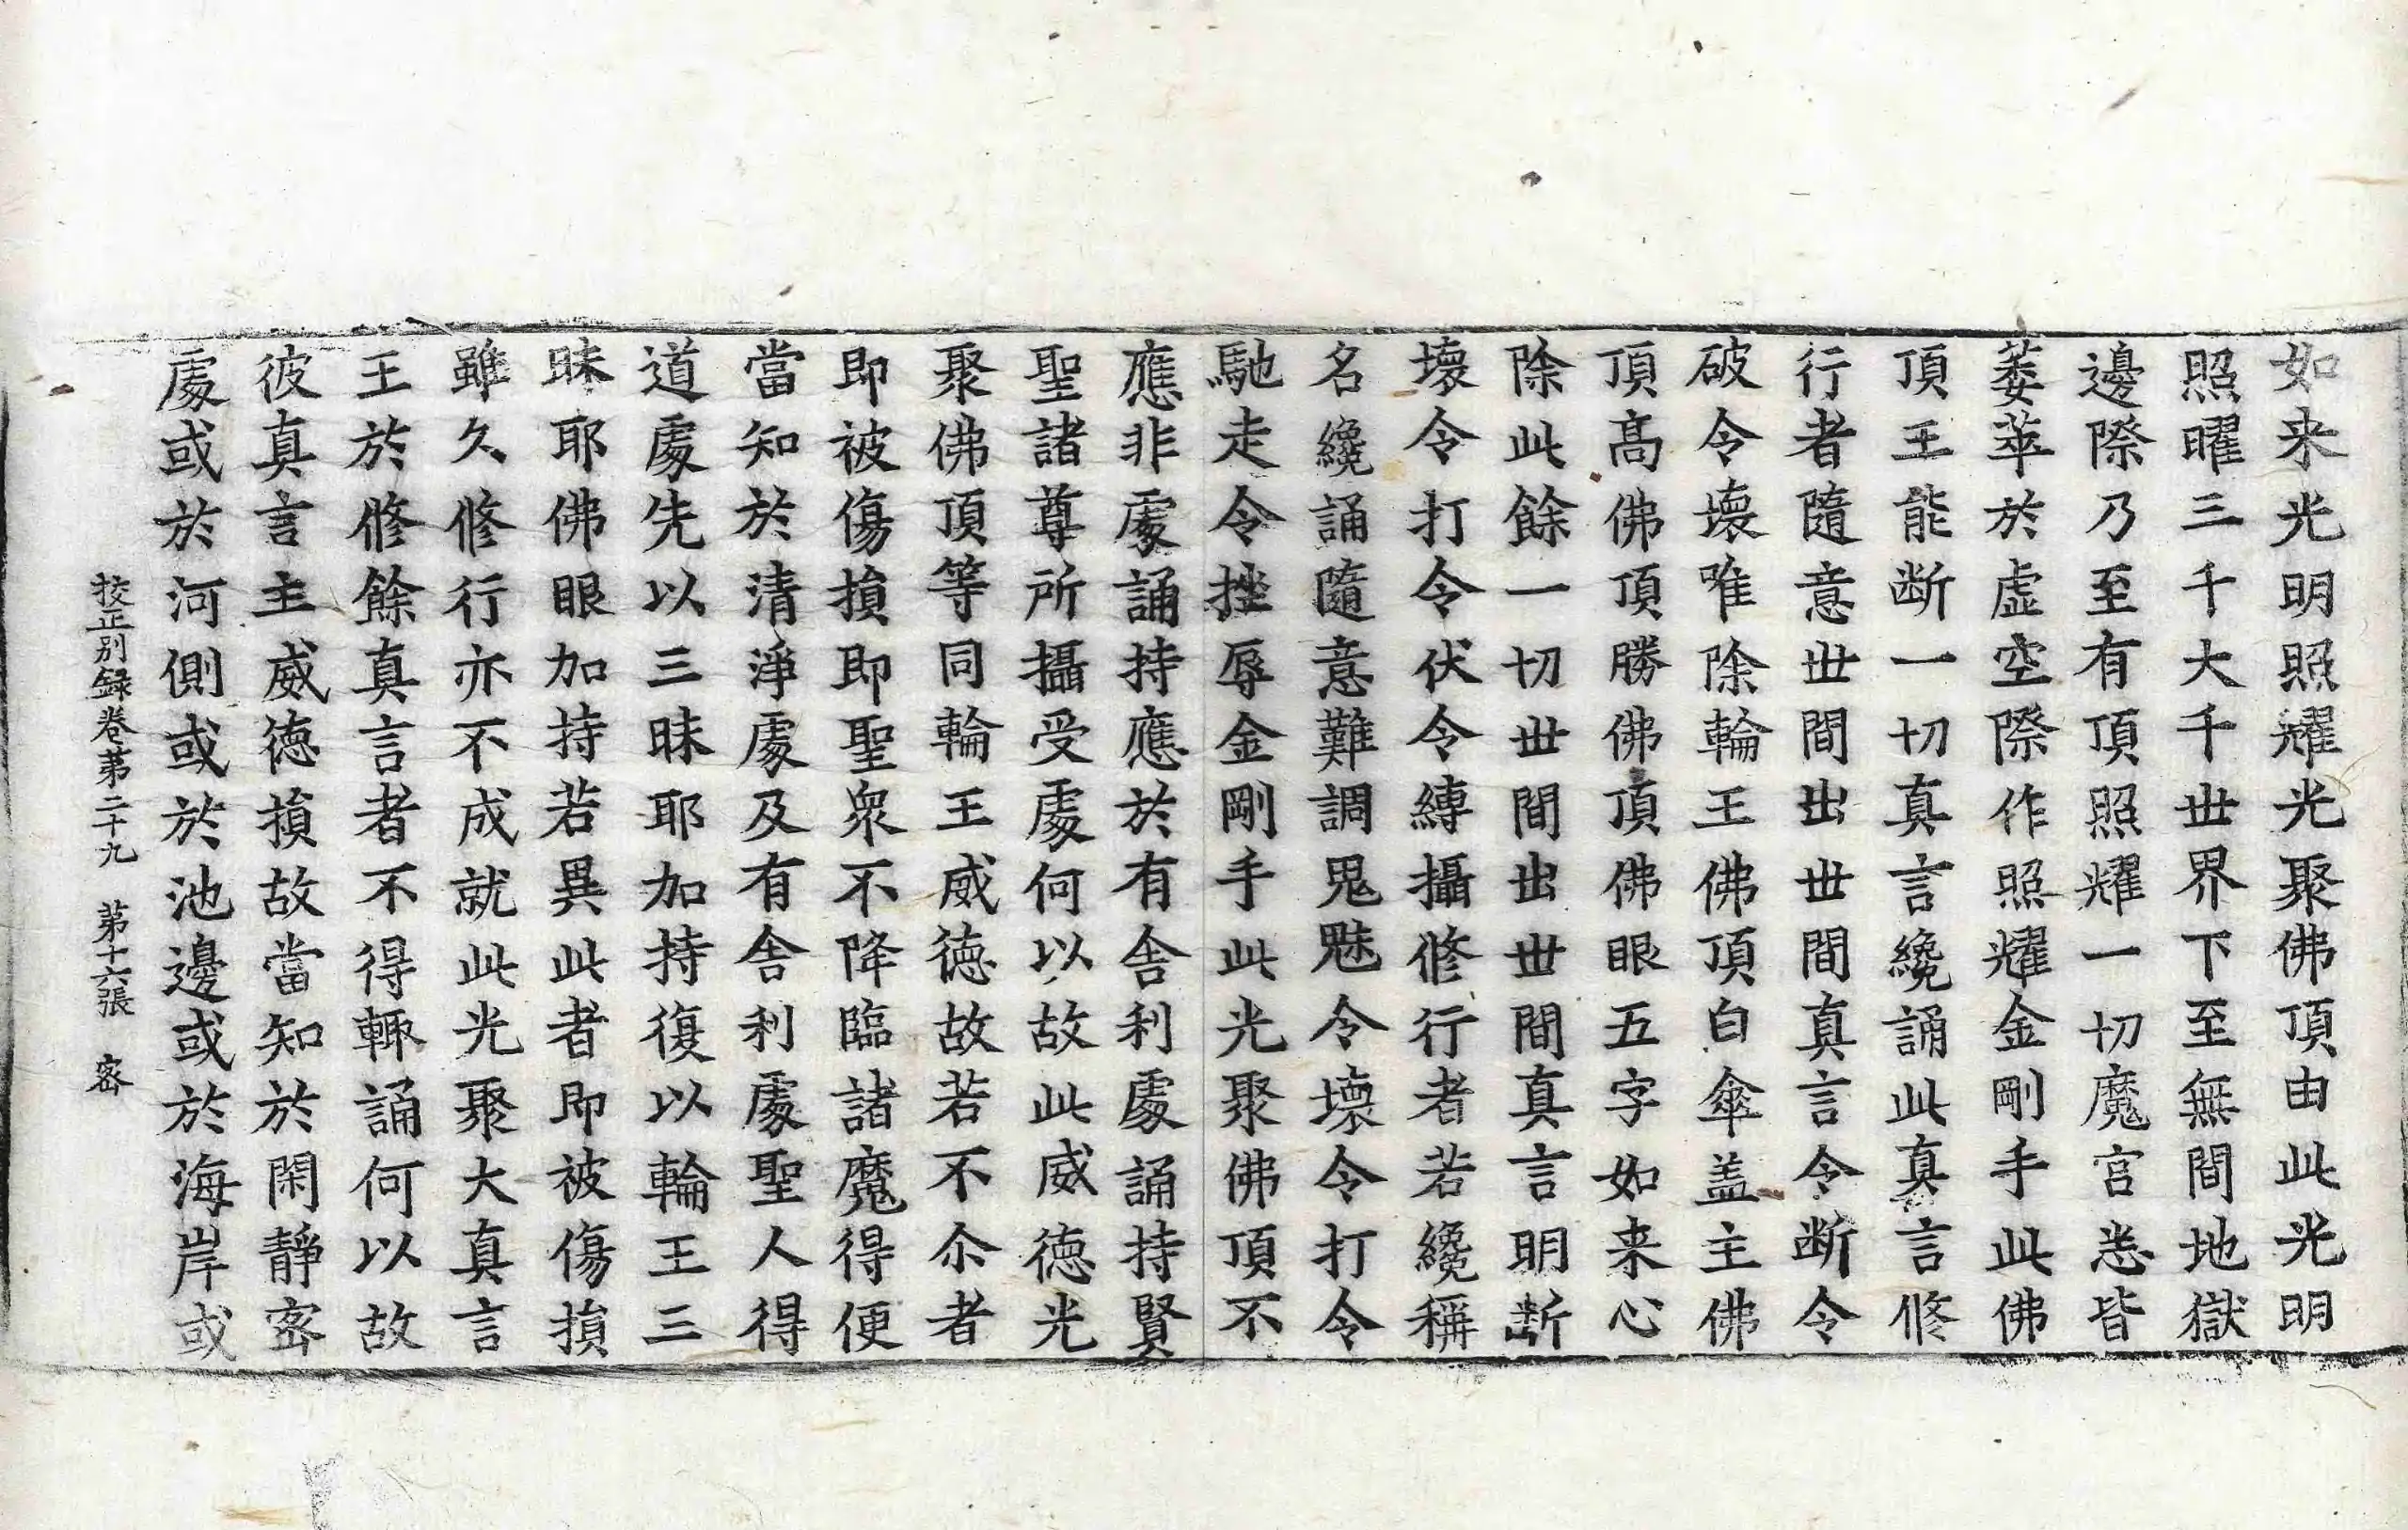 如来光明照耀光聚佛頂由此光明
照曜三千大千世界下至無間地獄
邊際乃至有頂照耀一切魔宫悉皆
萎莘於虚空際作照耀金剛手此佛
頂王能断一切真言纔誦此真言修
行者隨意世間出世間真言令断令
破令壞唯除輪王佛頂白傘盖主佛
頂髙佛頂勝佛頂佛眼五字如来心
除此餘一切世間出世間真言明断
壞令打令伏令縛攝修行者若纔稱
名纔誦隨意難調鬼魅令壞令打令
馳走令挫辱金剛手此光聚佛頂不
應非處誦持應於有舎利處誦持賢
聖諸尊所攝受處何以故此威徳光
聚佛頂等同輪王威徳故若不尒者
即被傷損即聖衆不降臨諸魔得便
當知於清淨處及有舎利處聖人得
道處先以三昧耶加持復以輪王三
昧耶佛眼加持若異此者即被傷損
雖久修行亦不成就此光聚大真言
王於修餘真言者不得輙誦何以故
彼真言主威徳損故當知於閑靜宻
處或於河側或於池邊或於海岸或
校正别録卷第二十九 第十六張 宻